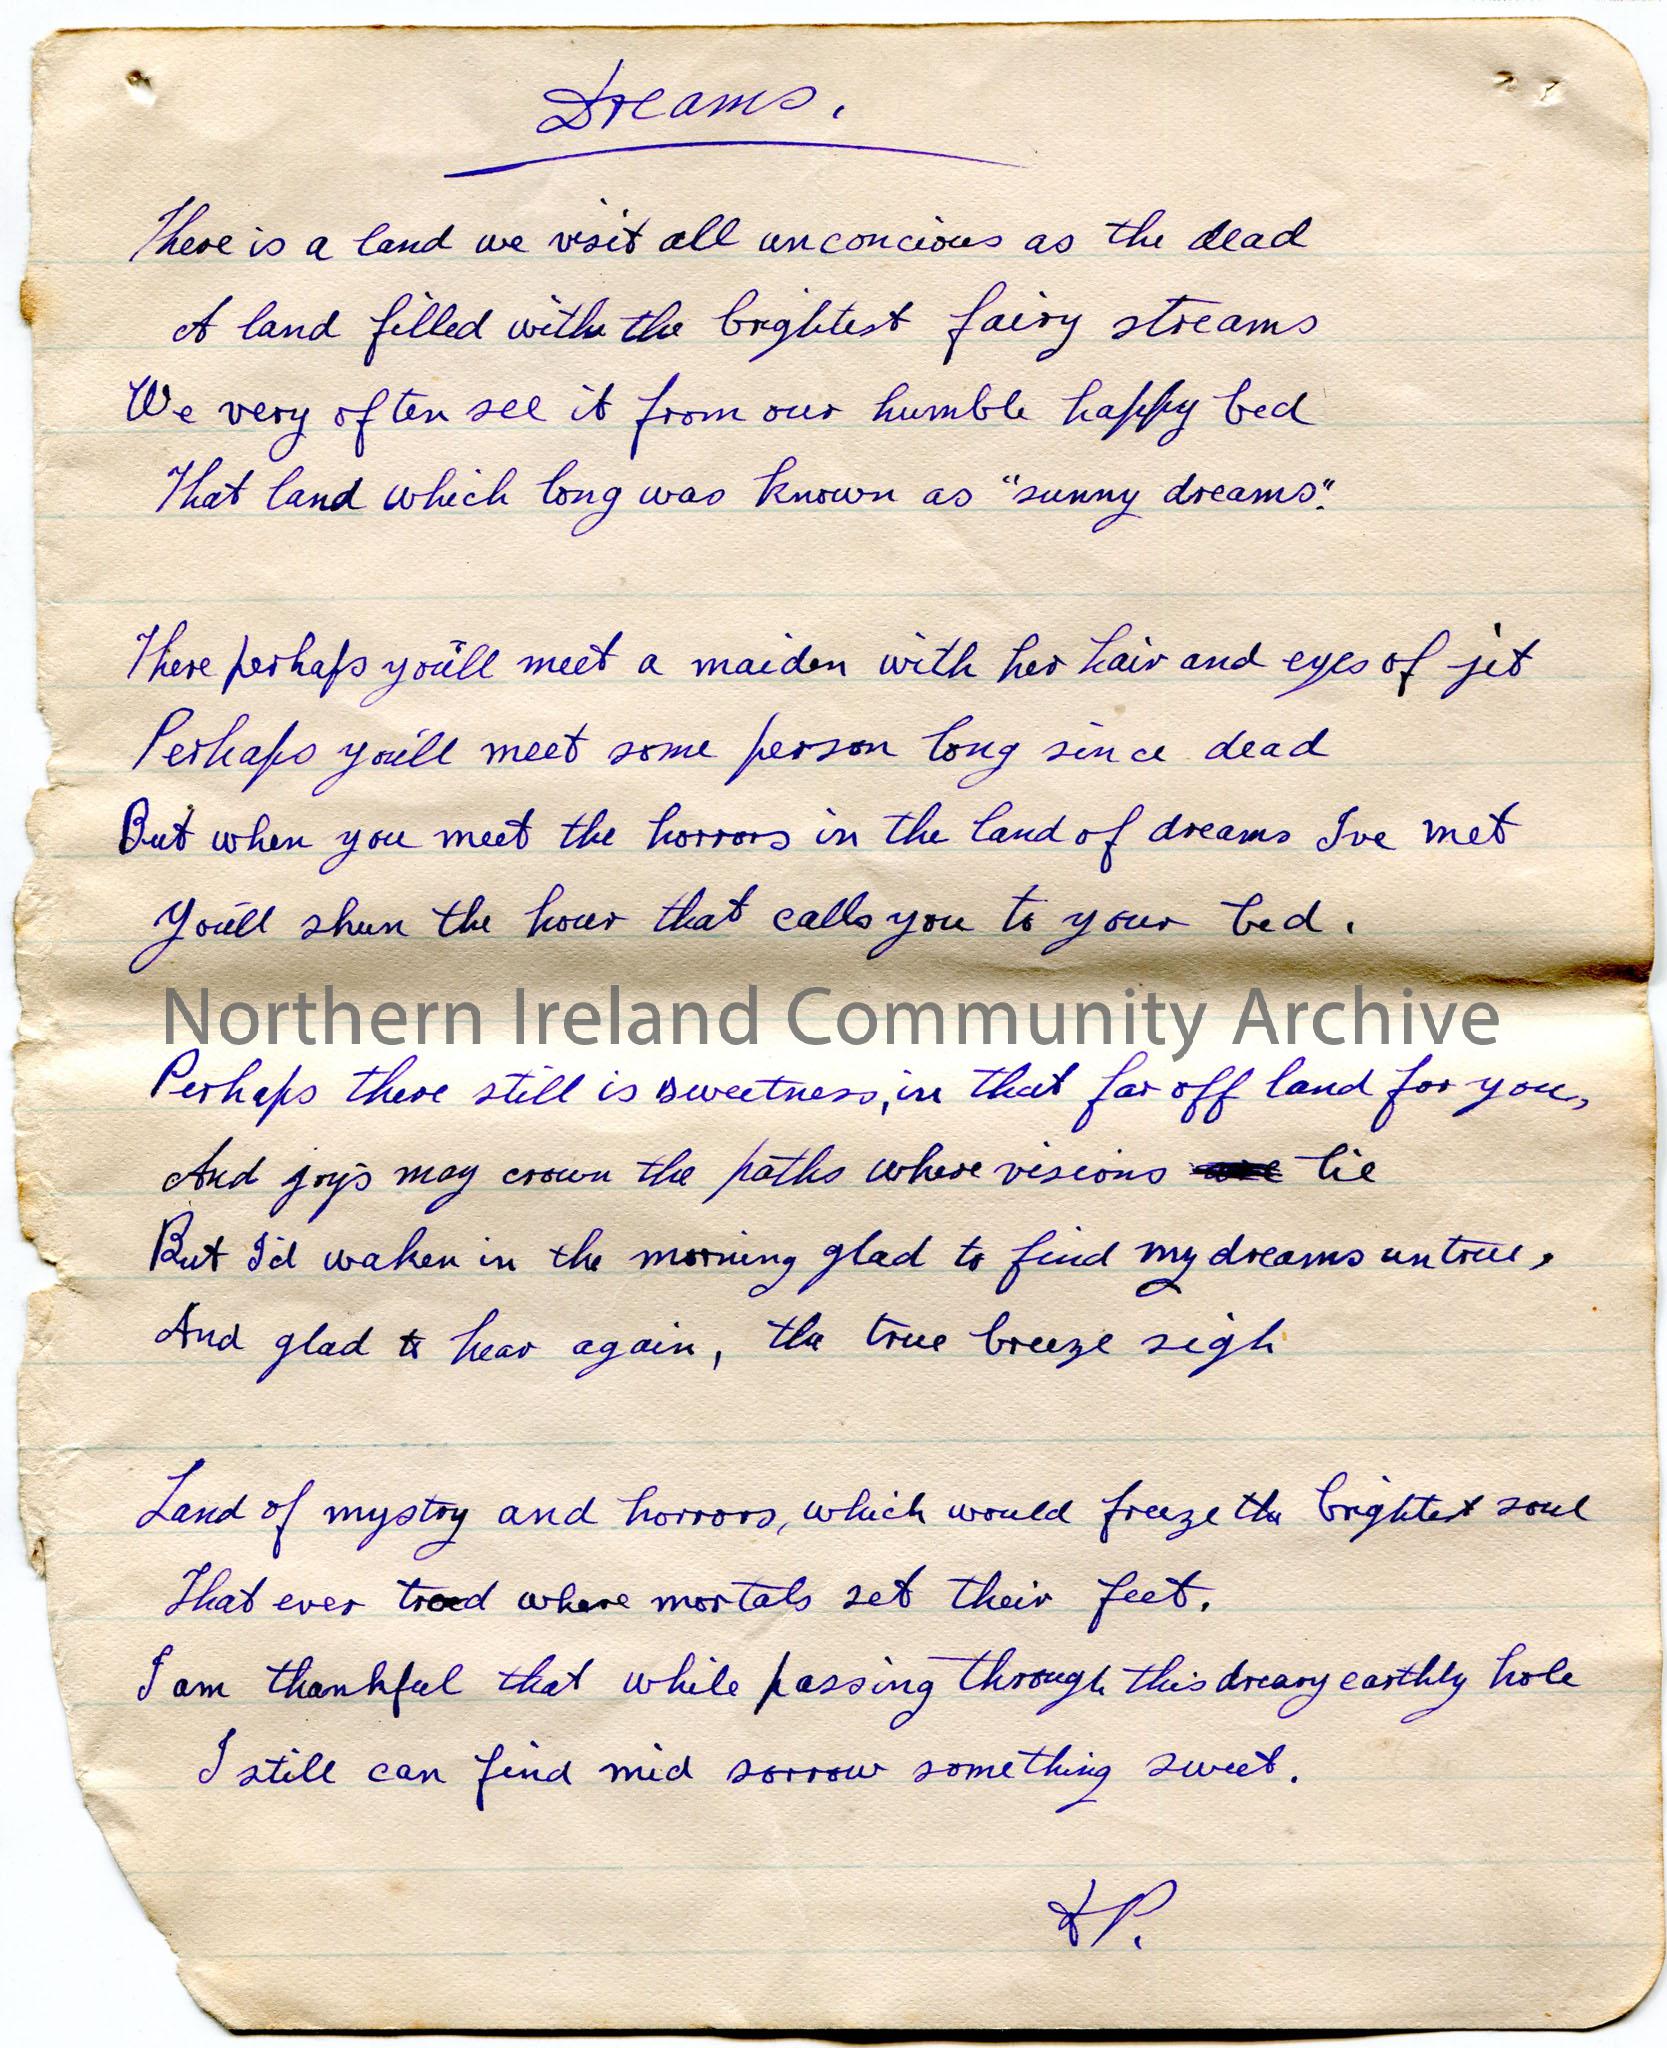 Dreams.
There is a land we visit all unconcious as the dead
A land filled with the brightest fairy streams
We very often see it from our humble happy bed
That land which long was known as "sunny dreams".
There perhaps you'll meet a maiden with her hair and eyes of jet
Perhaps you'll meet some person long since dead
But when you meet the horrors in the land of dreams I've met
You'll shun the hour that calls you to your bed.
Northern Ireland Community Archive
Perhaps there still is sweetness, in that far off land for you,
And joys may crown the paths where visions lie
But I'd waken in the morning glad to find my dreams untrue,
And glad to hear again, the true breeze sigh
Land of mystry and horrors, which would freeze the brightest soul
That ever trod where mortals set their feet.
I am thankful that while passing through this dreary earthly hole
I still can find mid sorrow something sweet.